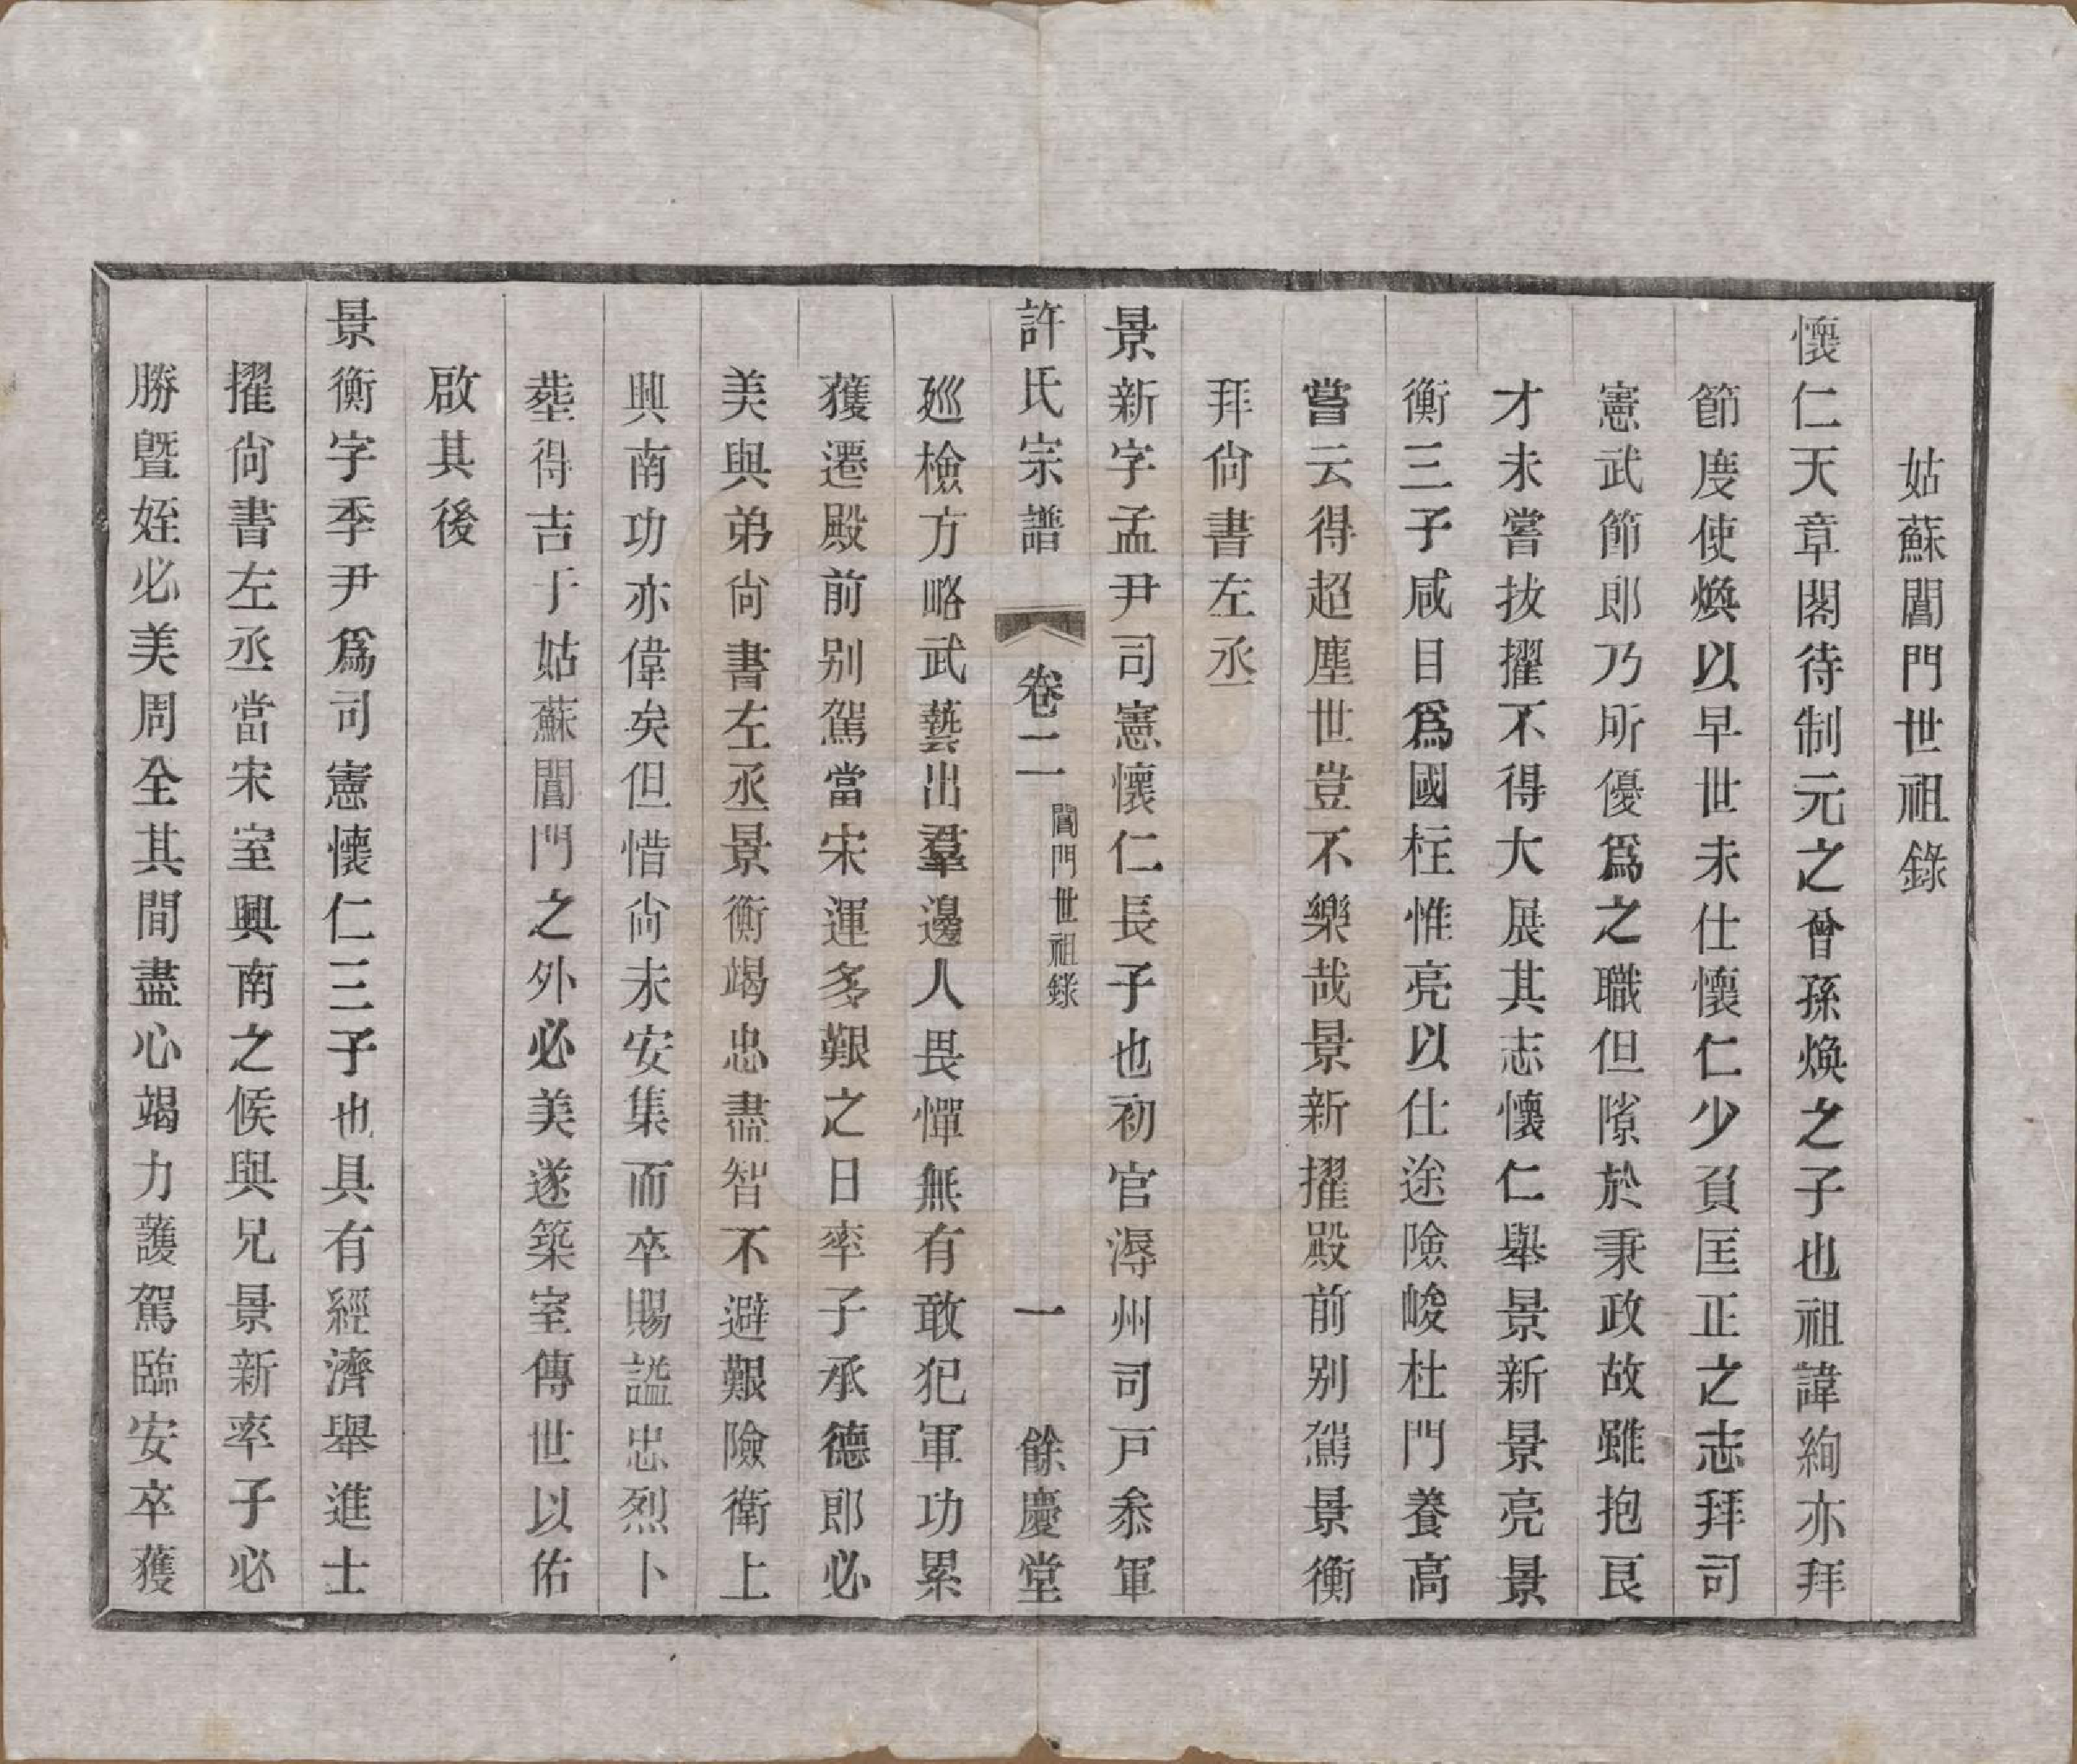 姑蘇閶門世祖錄
懷仁天章閣待制元之曾孫煥之子也祖諱絢亦拜
節度使煥以早世未仕懷仁少負匡正之志拜司
憲武節郎乃所優爲之職但隙於秉政故雖抱艮
才未嘗拔擢不得大展其志懷仁舉景新景亮景
衡三子咸目爲國柱惟亮以仕途險峻杜門養高
嘗云得超塵世豈不樂哉景新擢殿前别駕景衡
拜尙書左丞
景新字孟尹司憲懷仁長子也初官溽州司戸叅軍
許氏宗譜
卷二
閶門世祖錄
一
餘慶堂
廵檢方略武藝出羣邊人畏憚無有敢犯軍功累
獲遷殿前别駕當宋運多艱之日率子承德郎必
美與弟尙書左丞景衡竭忠盡智不避艱險衛上
興南功亦偉矣但惜尙未安集而卒賜謚忠烈卜
塟得吉于姑蘇閶門之外必美遂築室傳世以佑
啟其後
景衡字季尹爲司憲懷仁三子也具有經濟舉進士
擢尙書左丞當宋室興南之候與兄景新率子必
勝曁姪必美周全其間盡心竭力護駕臨安卒獲